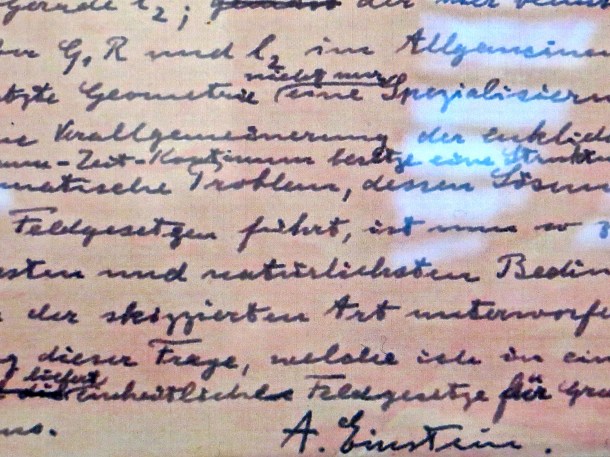 gerade l₂; der hier
der G, R und l₂ im Allgemeinen
Geometrie eine Spezialisierun
nicht nur
die Verallgemeinerung der euklid
Raum-Zeit-Kontinuum besitze eine Struktur
matische Problem, dessen Lösun
Feldgesetzen führt, ist nun so
sten und natürlichsten Bedin
der skizzierten Art unterworfe
dieser Frage, welche ich in ein
liefert
einheitliche Feldgesetze für Gra
A. Einstein.